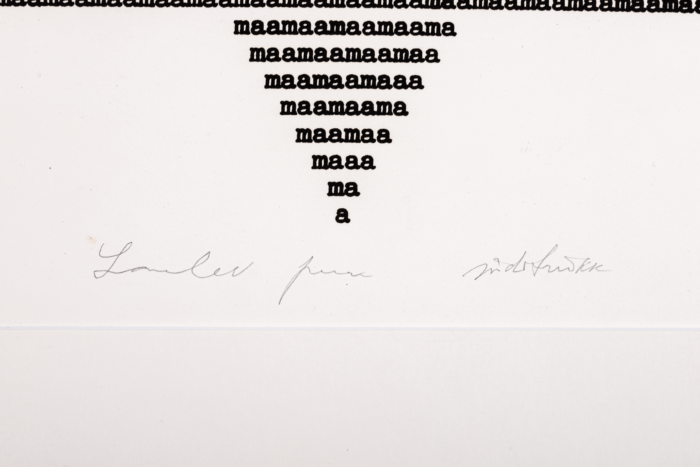 maamaamaamaama
maamaamaamaa
maamaamaaa
maamaama
maamaa
maaa
ma
a
Laulev puu siiditrükk